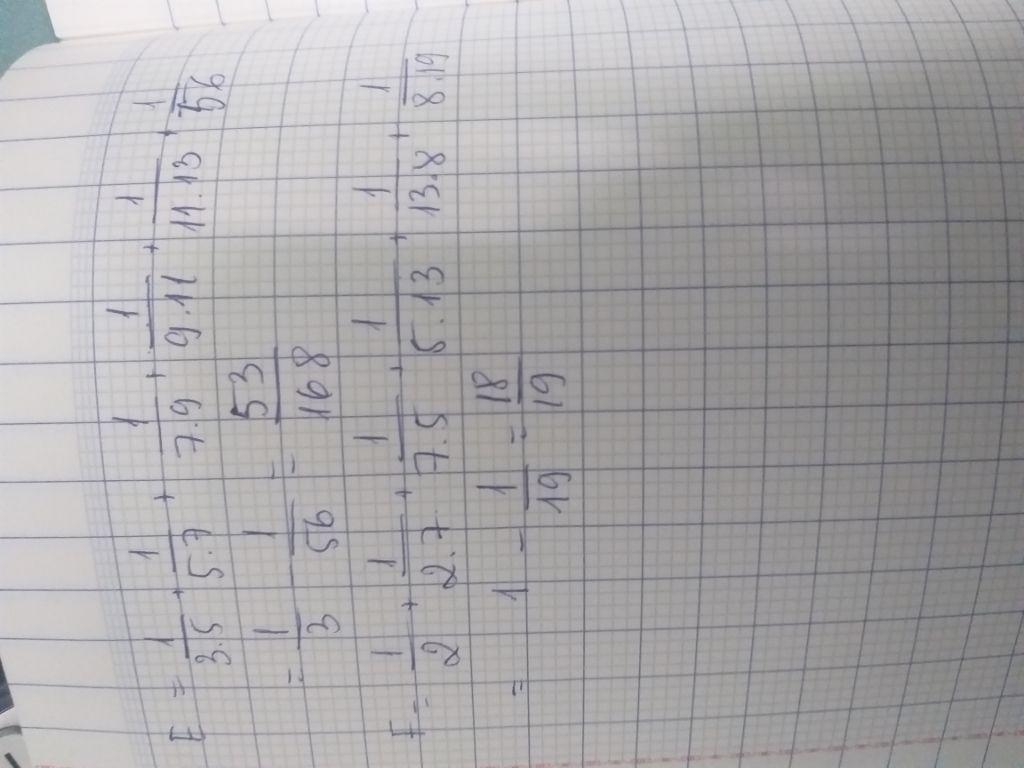 E = 1/3.5 + 1/5.7 + 1/7.9 + 1/9.11 + 1/11.13 + 1/56
= 1/3 - 1/56 = 53/168
F = 1/2 + 1/2.7 + 1/7.5 + 1/5.13 + 1/13.8 + 1/8.19
= 1 - 1/19 = 18/19